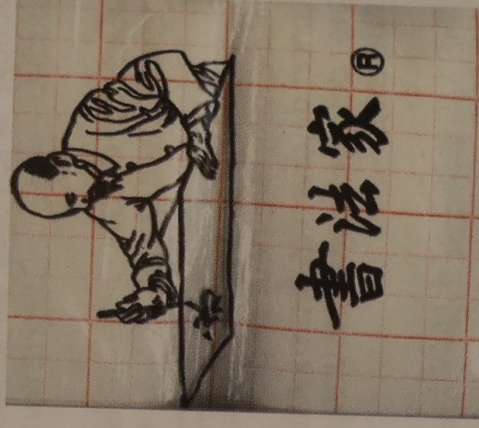 書法家®